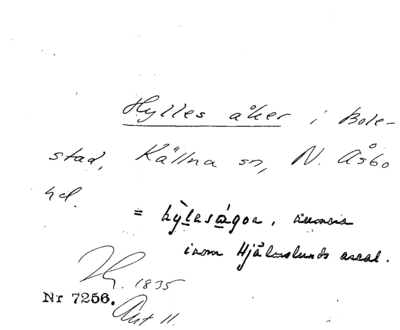 Hylles åker i Bole-
stad, Källna sn, N. Åsbo
hd.
= hỳlesågoa,
inom Hjälmslunds areal.
1835
Nr 7256.
Akt 11.